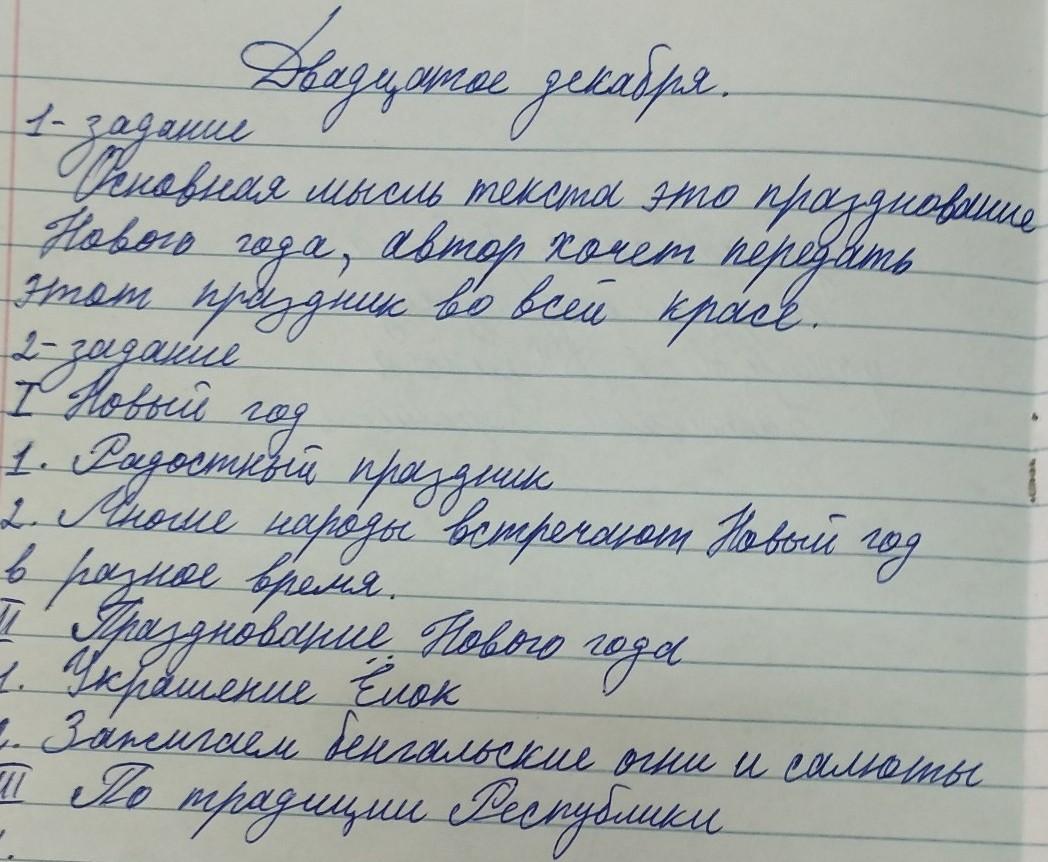 Двадцатое декабря.
1- задание
Основная мысль текста это празднование
Нового года, автор хочет передать
этот праздник во всей красе.
2- задание
I Новый год
1. Радостный праздник
2. Многие народы встречают Новый год
в разное время.
II Празднование Нового года
1. Украшение Ёлок
2. Зажигаем бенгальские огни и салюты
III По традиции Республики
1.